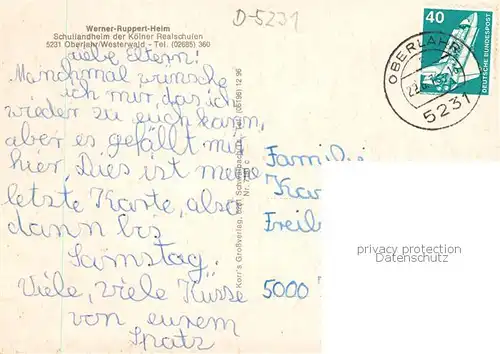 D-5231
Werner-Ruppert-Heim
Schullandheim der Kölner Realschulen
5231 Oberlahr/Westerwald - Tel. (02685) 360
Liebe Eltern!
Manchmal wünsche
ich mir, das ich
wieder zu euch kann,
aber es gefällt mir
hier, Dies ist meine
letzte Karte, also
dann bis
Samstag.
Viele, viele Küsse
von eurem
Spatz
Korr's Großverlag, Tel. (06196) 12 96
40
DEUTSCHE BUNDESPOST
OBERLAHR
5231
Familie
Kar
Freib
5000
privacy protection
Datenschutz